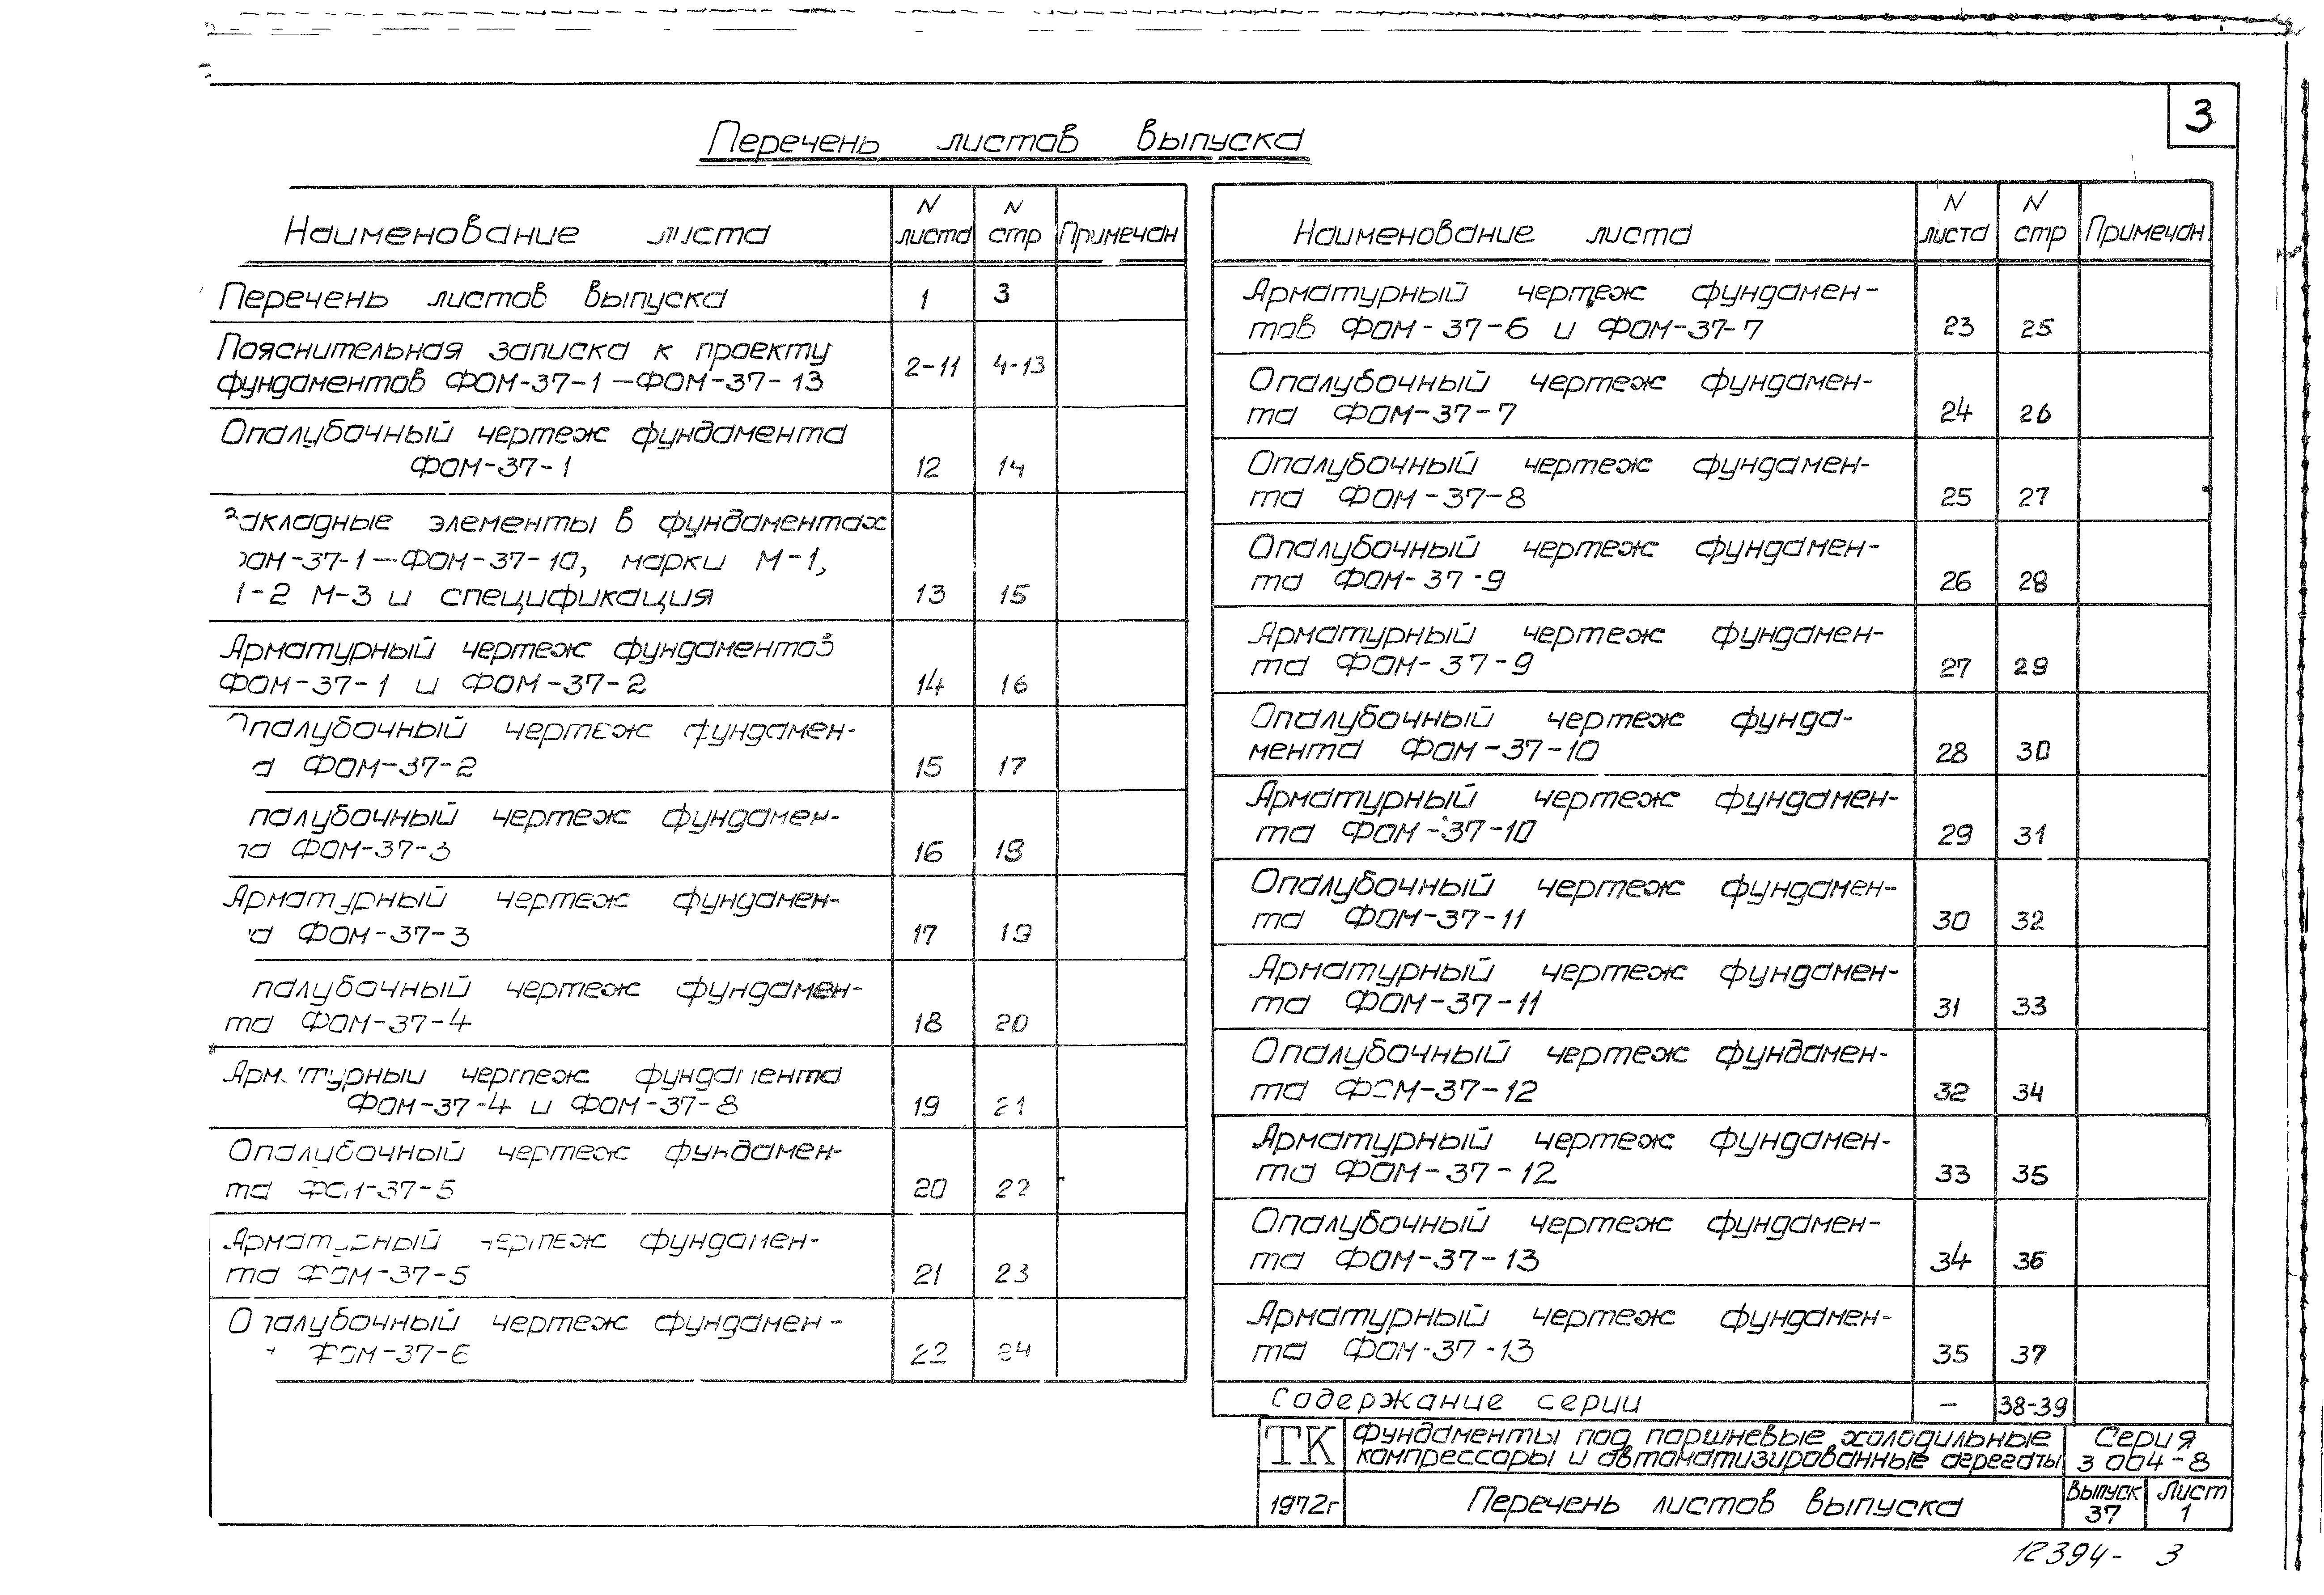 3
Перечень листов выпуска
Наименование листа N листа N стр Примечан
Перечень листов выпуска 1 3
Пояснительная записка к проекту
фундаментов ФОМ-37-1—ФОМ-37-13 2-11 4-13
Опалубочный чертеж фундамента
ФОМ-37-1 12 14
Закладные элементы в фундаментах
ФОМ-37-1—ФОМ-37-10, марки М-1,
М-2 М-3 и спецификация 13 15
Арматурный чертеж фундаментов
ФОМ-37-1 и ФОМ-37-2 14 16
Опалубочный чертеж фундамен-
та ФОМ-37-2 15 17
Опалубочный чертеж фундамен-
та ФОМ-37-3 16 18
Арматурный чертеж фундамен-
та ФОМ-37-3 17 19
Опалубочный чертеж фундамен-
та ФОМ-37-4 18 20
Арматурный чертеж фундамента
ФОМ-37-4 и ФОМ-37-8 19 21
Опалубочный чертеж фундамен-
та ФОМ-37-5 20 22
Арматурный чертеж фундамен-
та ФОМ-37-5 21 23
Опалубочный чертеж фундамен-
та ФОМ-37-6 22 24
Наименование листа N листа N стр Примечан
Арматурный чертеж фундамен-
тов ФОМ-37-6 и ФОМ-37-7 23 25
Опалубочный чертеж фундамен-
та ФОМ-37-7 24 26
Опалубочный чертеж фундамен-
та ФОМ-37-8 25 27
Опалубочный чертеж фундамен-
та ФОМ-37-9 26 28
Арматурный чертеж фундамен-
та ФОМ-37-9 27 29
Опалубочный чертеж фунда-
мента ФОМ-37-10 28 30
Арматурный чертеж фундамен-
та ФОМ-37-10 29 31
Опалубочный чертеж фундамен-
та ФОМ-37-11 30 32
Арматурный чертеж фундамен-
та ФОМ-37-11 31 33
Опалубочный чертеж фундамен-
та ФОМ-37-12 32 34
Арматурный чертеж фундамен-
та ФОМ-37-12 33 35
Опалубочный чертеж фундамен-
та ФОМ-37-13 34 36
Арматурный чертеж фундамен-
та ФОМ-37-13 35 37
Содержание серии — 38-39
ТК Фундаменты под поршневые холодильные
компрессоры и автоматизированные агрегаты
Серия
3 004-8
1972г Перечень листов выпуска
Выпуск 37
Лист 1
12394- 3